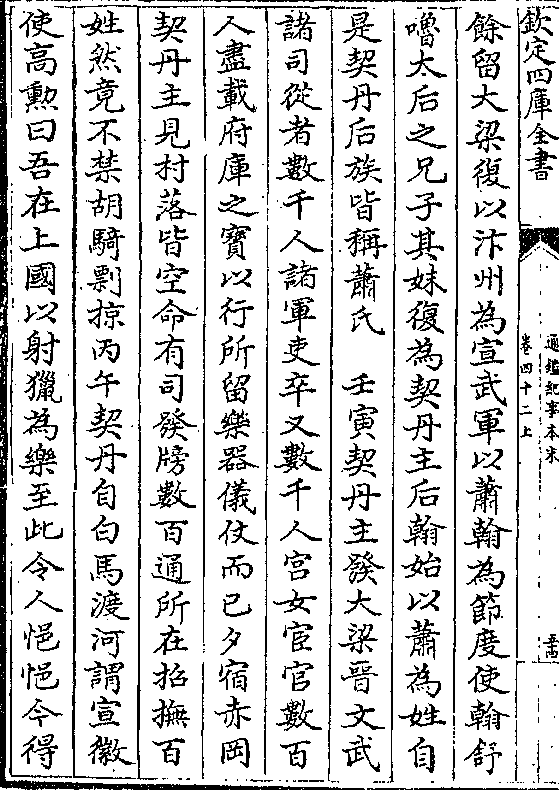 欽定四庫全書
通鑑紀事本末
卷四十二上
餘留大梁復以汴州為宣武軍以蕭翰為節度使翰舒
嚕太后之兄子其妹復為契丹主后翰始以蕭為姓自
是契丹后族皆稱蕭氏　壬寅契丹主發大梁晉文武
諸司從者數千人諸軍吏卒又數千人宮女宦官數百
人盡載府庫之寶以行所留樂器儀仗而已夕宿赤岡
契丹主見村落皆空命有司發牓數百通所在招撫百
姓然竟不禁胡騎剽掠丙午契丹自白馬渡河謂宣徽
使高勲曰吾在上國以射獵為樂至此令人悒悒今得